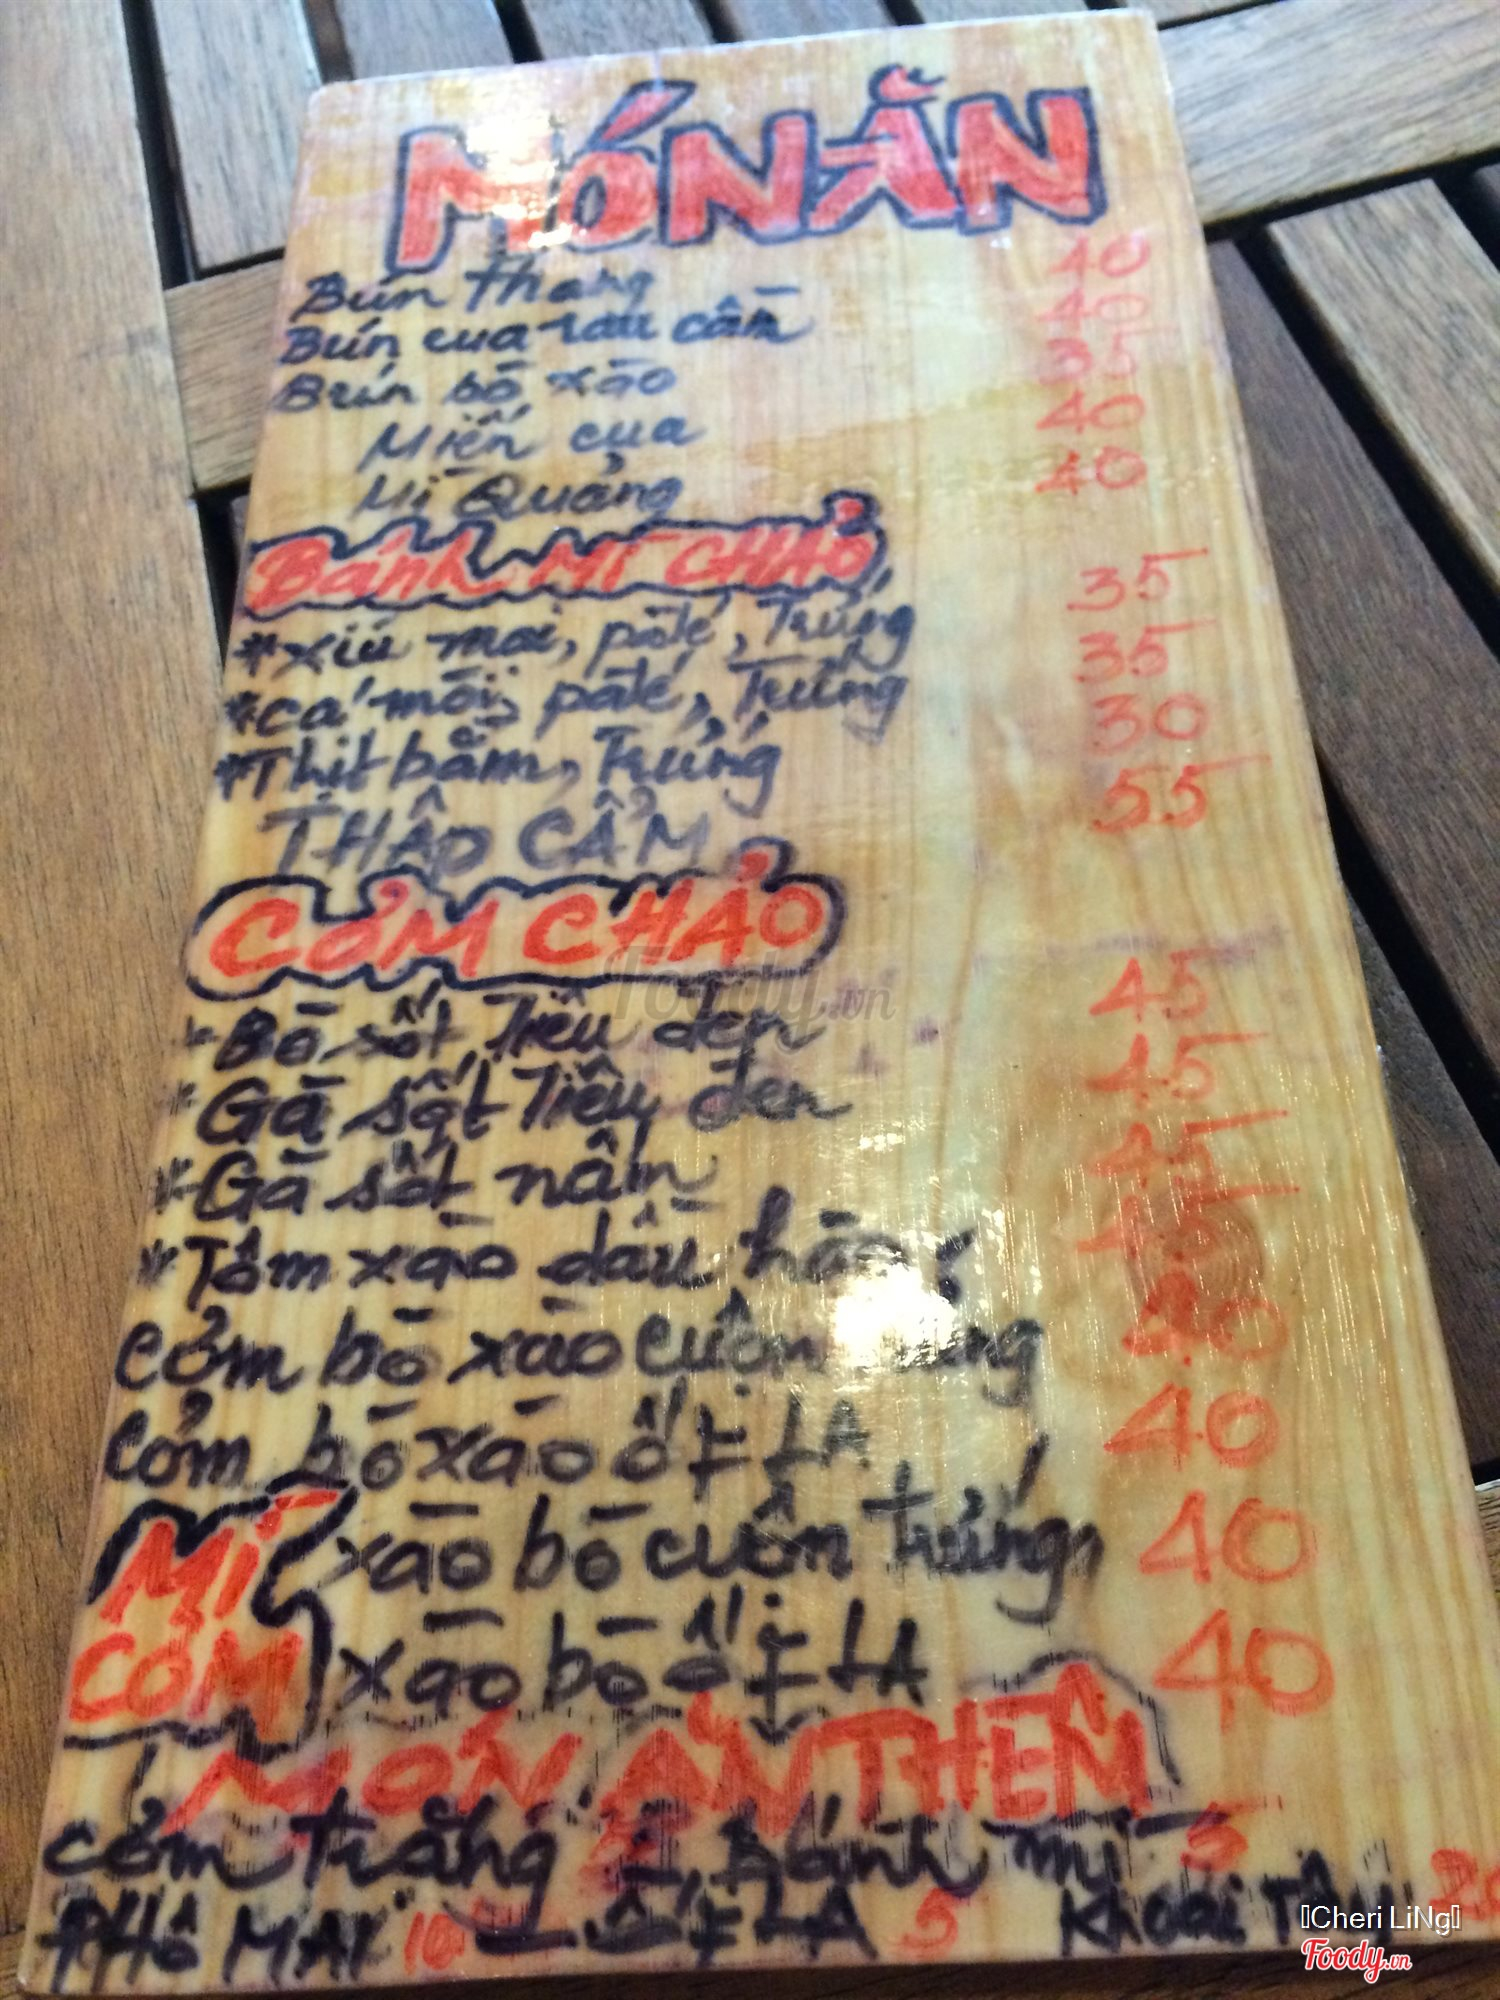 MÓN ĂN
Bún thang 40
Bún cua rau cần 40
Bún bò xào 35
Miến cua 40
Mì Quảng 40
Bánh Mì CHẢO
*Xíu mại, pate, Trứng 35
*Cá mòi, pate, Trứng 35
*Thịt bằm, Trứng 30
THẬP CẨM 55
CƠM CHẢO
*Bò sốt Tiêu đen 45
*Gà sốt Tiêu đen 45
*Gà sốt nấm 45
*Tôm xào dầu hào
Cơm bò xào cuộn
Cơm bò xào ốp LA 40
MÌ xào bò cuộn trứng 40
CƠM xào bò ốp LA 40
MÓN ĂN THÊM
Cơm trắng 5 Bánh mì 5
PHÔ MAI 10 ốp LA 5 KHOAI TÂY
Foody.vn
Cheri LiNg
Foody.vn